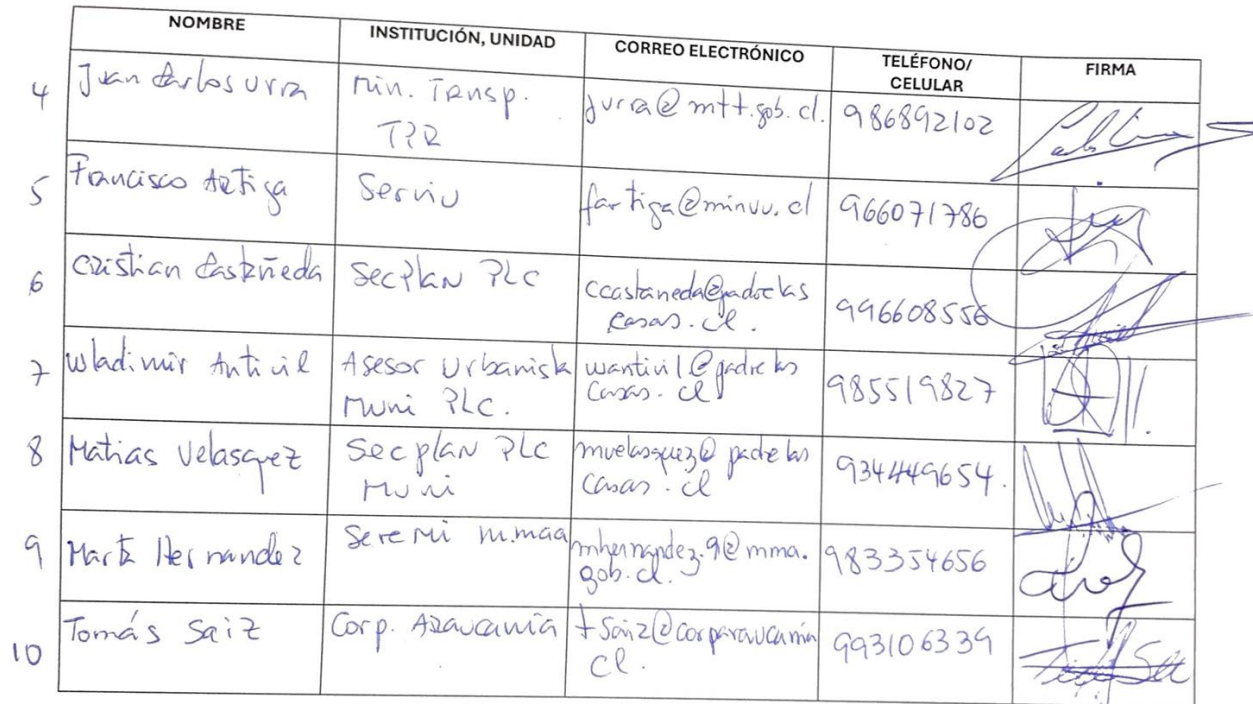 NOMBRE INSTITUCIÓN, UNIDAD CORREO ELECTRÓNICO TELÉFONO/ CELULAR FIRMA
4 Juan Carlos Urra Min. Transp. jurra@mtt.gob.cl. 986892102
TPR
5 Francisco Artiga Serviu fartiga@minvu.cl 966071786
6 Cristian Castañeda SecPlan PLC ccastaneda@padrelas 996608556
casas.cl.
7 Wladimir Antivil Asesor Urbanista wantivil@padrelas 985519827
Muni PLC. casas.cl
8 Matias Velasquez Secplan PLC mvelasquez@padrelas 934449654.
Muni casas.cl
9 Marta Hernandez Seremi m.maa mhernandez.9@mma. 983354656
gob.cl.
10 Tomás Saiz Corp. Araucanía tsaiz@corparaucania 993106339
cl.